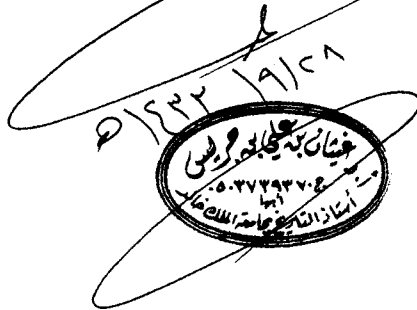 ١٤٣٢/٩/٢٨هـ
غيثان بن علي بن جريس
ج ٠٥٠٣٧٢٩٣٧٠
أبها
أستاذ التاريخ بجامعة الملك خالد